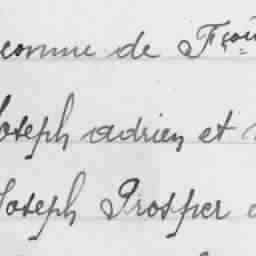 comme de Fçois
Joseph adrien et
Joseph Prosper